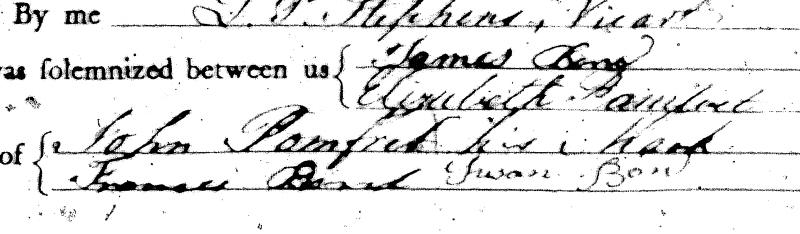 By me L. P. Stephens, Vicar
was solemnized between us { James Bond
Elizabeth Pamfret
of { John Pomfret his mark
Frances Bond Swan Bon